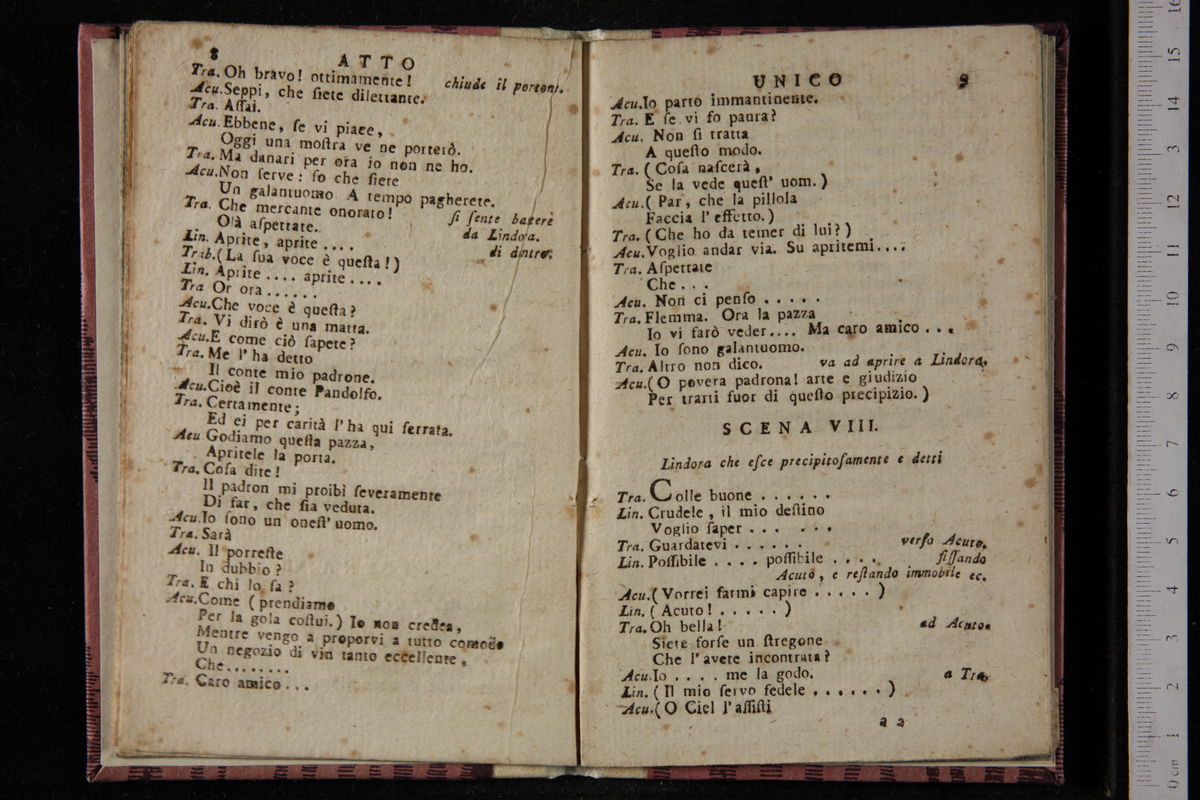 8 ATTO
Tra. Oh bravo! ottimamente! chiude il portone.
Acu. Seppi, che ſiete dilettante.
Tra. Aſſai.
Acu. Ebbene, ſe vi piace,
Oggi una moſtra ve ne porterò.
Tra. Ma danari per ora io non ne ho.
Acu. Non ſerve: ſo che ſiete
Un galantuomo A tempo pagherete.
Tra. Che mercante onorato! ſi ſente battere
Olà aſpettate. da Lindora.
Lin. Aprite, aprite .... di dntro.
Trab. (La ſua voce è queſta!)
Lin. Aprite .... aprite ....
Tra Or ora ......
Acu. Che voce è queſta?
Tra. Vi dirò è una matta.
Acu. E come ciò ſapete?
Tra. Me l'ha detto
Il conte mio padrone.
Acu. Cioè il conte Pandolfo.
Tra. Certamente;
Ed ei per carità l'ha qui ſerrata.
Acu Godiamo queſta pazza,
Apritele la porta.
Tra. Coſa dite!
Il padron mi proibì ſeveramente
Di far, che ſia veduta.
Acu. Io ſono un oneſt' uomo.
Tra. Sarà
Acu. Il porreſte
In dubbio?
Tra. E chi lo ſa?
Acu. Come (prendiamo
Per la gola coſtui.) Io non credea,
Mentre vengo a proporvi a tutto comodo
Un negozio di vin tanto eccellente,
Che........
Tra. Caro amico ...
UNICO 9
Acu. Io parto immantinente.
Tra. E ſe vi fo paura?
Acu. Non ſi tratta
A queſto modo.
Tra. (Coſa naſcerà,
Se la vede queſt' uom.)
Acu. (Par, che la pillola
Faccia l'effetto.)
Tra. (Che ho da temer di lui?)
Acu. Voglio andar via. Su apritemi....
Tra. Aſpettate
Che ...
Acu. Non ci penſo .....
Tra. Flemma. Ora la pazza
Io vi farò veder.... Ma caro amico ...
Acu. Io ſono galantuomo.
Tra. Altro non dico. va ad aprire a Lindora.
Acu. (O povera padrona! arte e giudizio
Per trarti fuor di queſto precipizio.)
SCENA VIII.
Lindora che eſce precipitoſamente e detti
Tra. Colle buone ......
Lin. Crudele, il mio deſtino
Voglio ſaper ... ...
Tra. Guardatevi ...... verſo Acuto.
Lin. Poſſibile .... poſſibile .... fiſſando
Acuto, e reſtando immobile ec.
Acu. (Vorrei farmi capire .....)
Lin. (Acuto! .....)
Tra. Oh bella! ad Acuto.
Siete forſe un ſtregone
Che l'avete incontrata?
Acu. Io .... me la godo. a Tra.
Lin. (Il mio ſervo fedele ......)
Acu. (O Ciel l'aſſiſti
a 2
0 cm 1 2 3 4 5 6 7 8 9 10 11 12 13 14 15 16